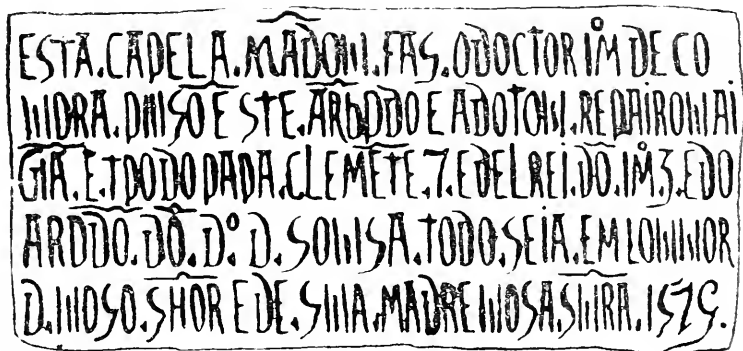 ESTA.CAPELA.MÃDOU.FAS.ODOCTOR IM̊ DE CO
E STE. E ADOTOU.REPAIROU AI
GIA.E.TPO DO PAPA.CLEMẼTE.7.E DEL REI.DÕ.IM̊.3.EDO
ARDDO.DÕ.D°.D.SOUSA.TODO.SEIA.EM LOUUOR
D.NOSO.SHOR E DE.SUA.MADRE NOSA.